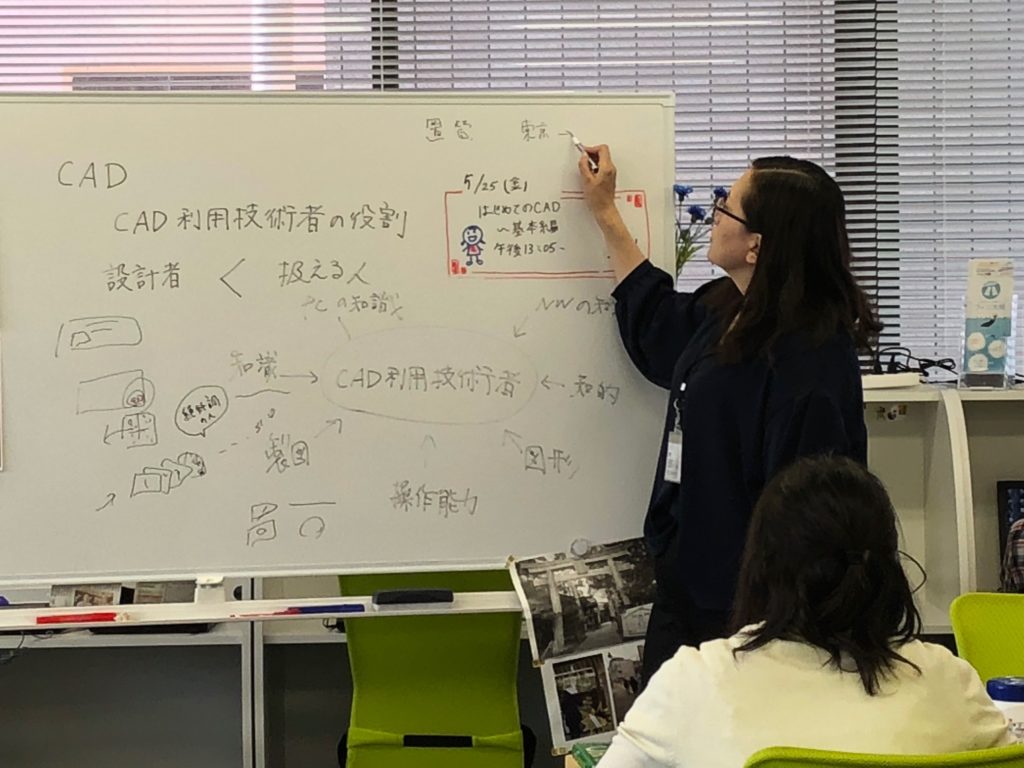 置管 東京
CAD
CAD利用技術者の役割
5/25(金)
はじめてのCAD
～基本編
午後13:05～
設計者 < 扱える人
PCの知識
NWの知
知識 →
CAD利用技術者
← 知的
製図
図形
操作能力